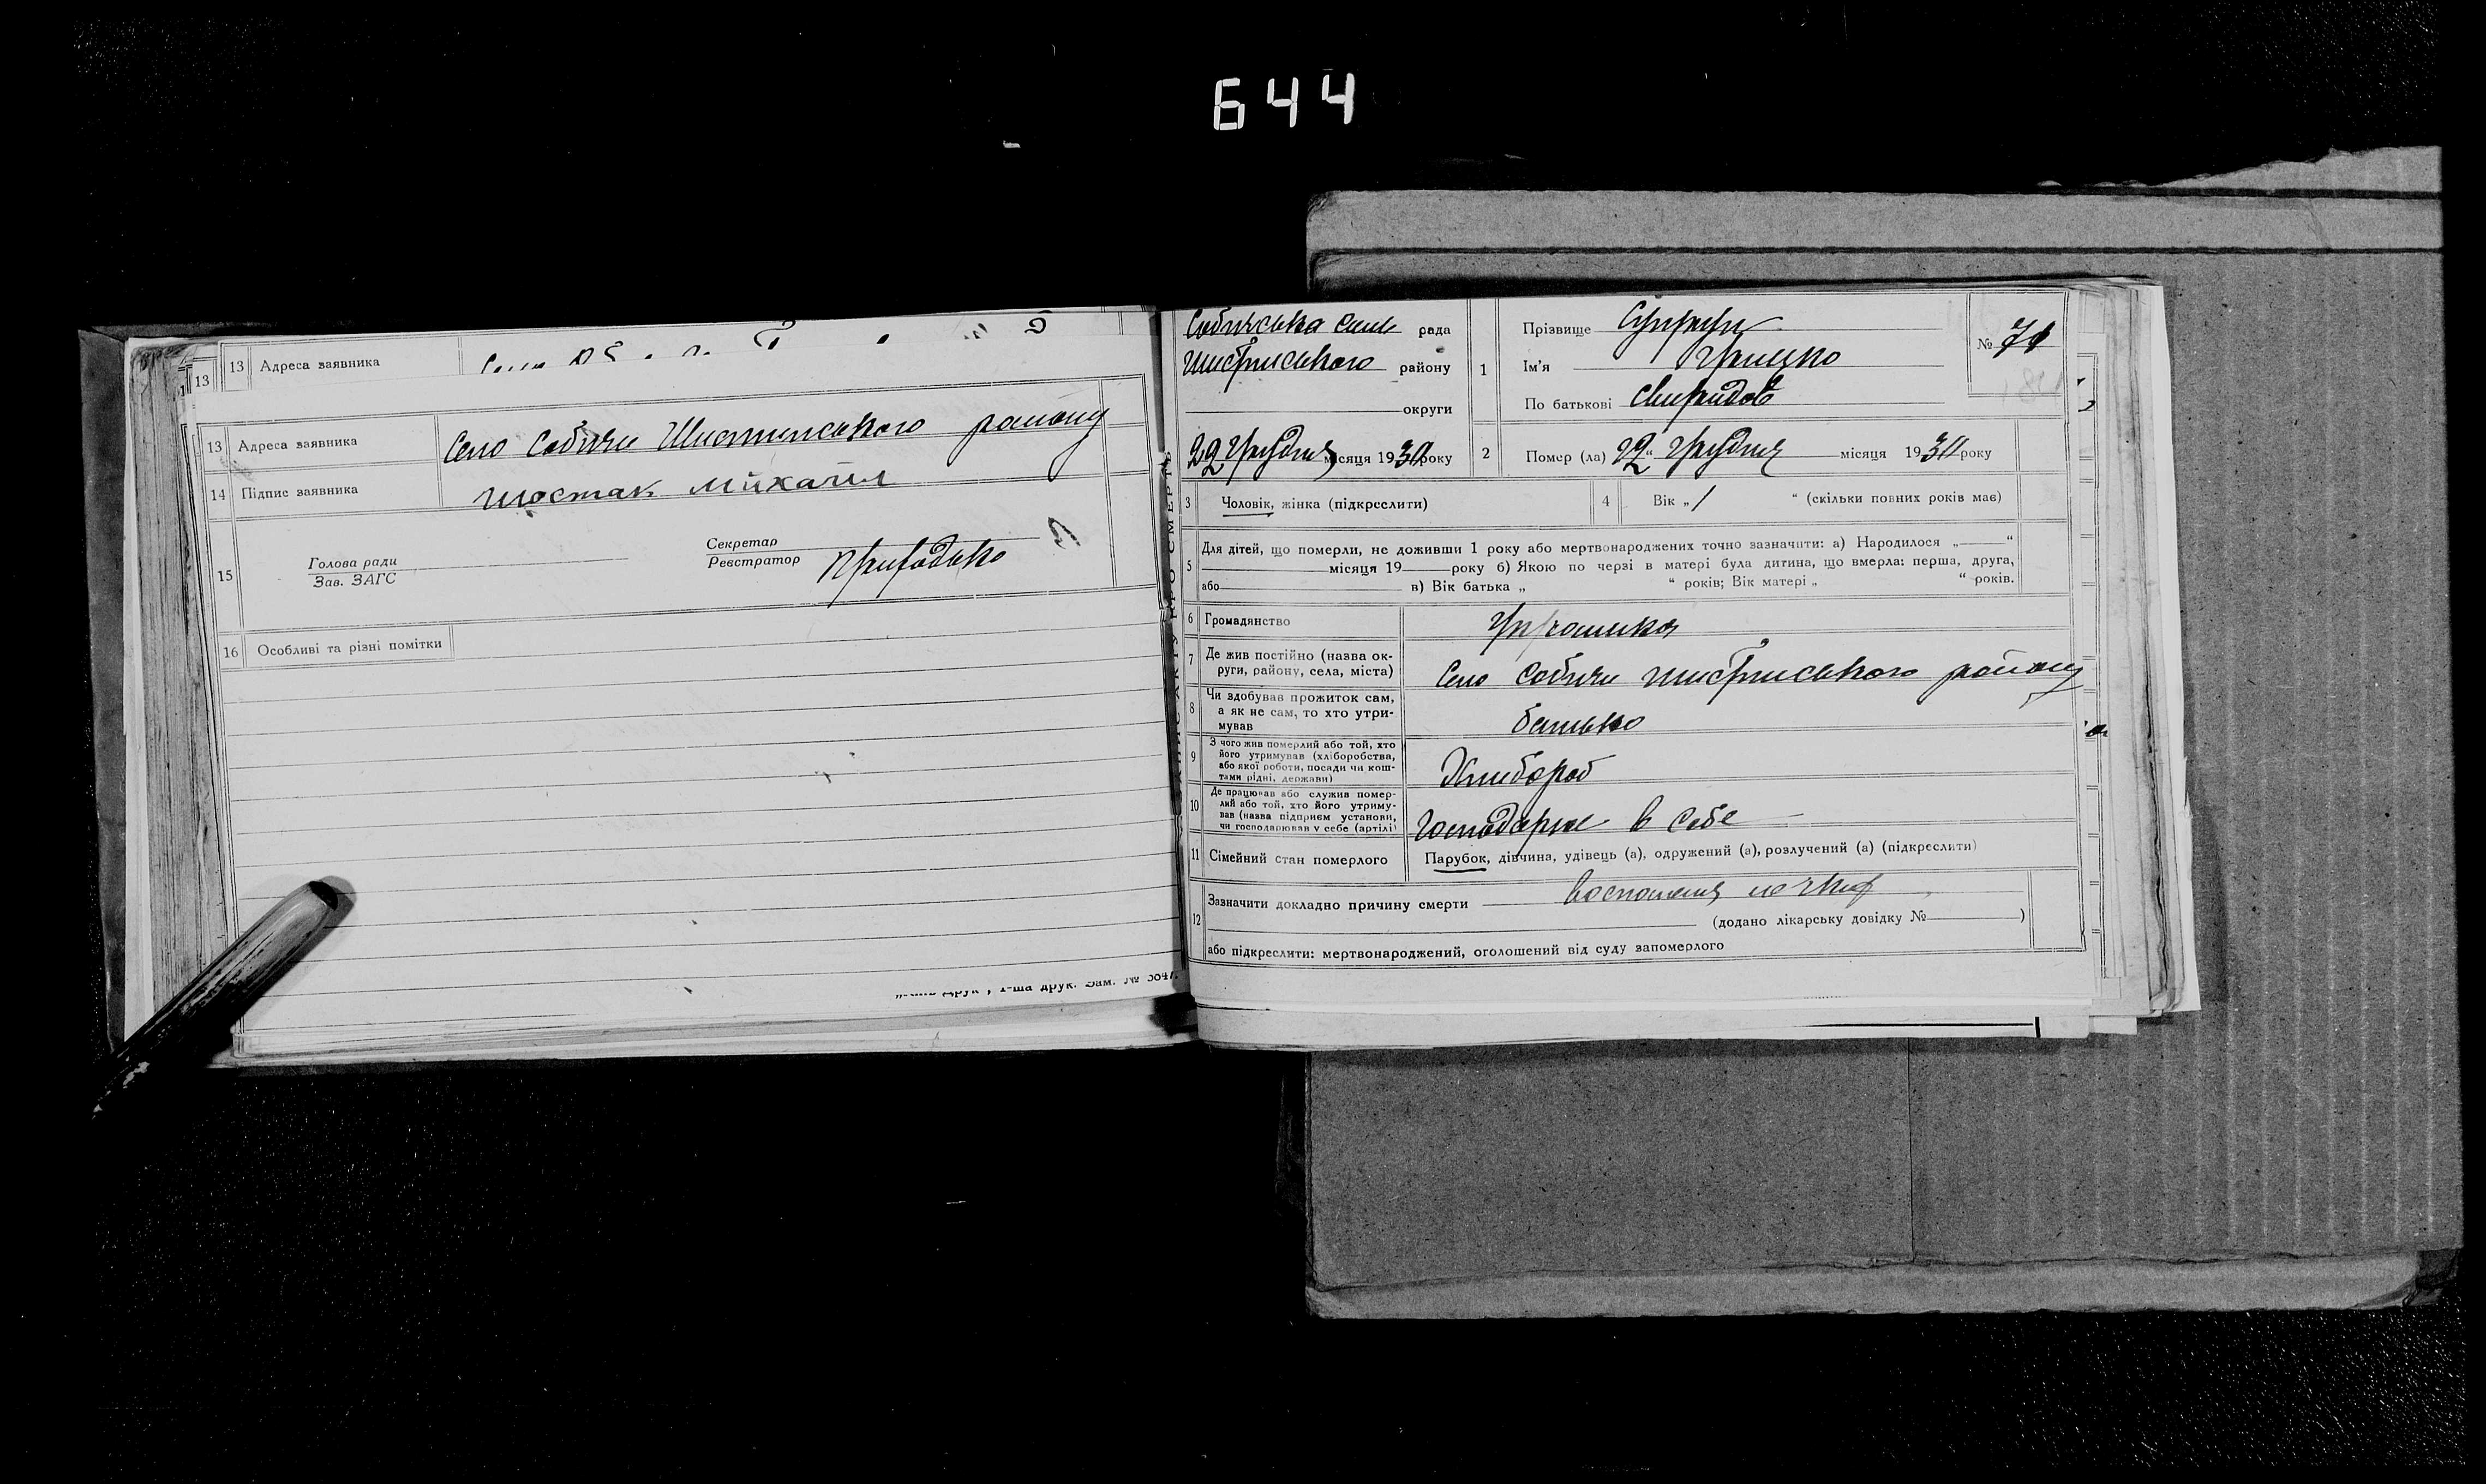 644
13 Адреса заявника
13
13 Адреса заявника Село Собичи Шистинського району
14 Підпис заявника Шостак Михаил
15 Голова ради
Зав. ЗАГС
Секретар
Реєстратор Приходько
16 Особливі та різні помітки
Собичська рада
району
округи
22 Грудня місяця 1930 року
1 Прізвище
Ім'я Грицко
По батькові Свиридов
№ 71
2 Помер (ла) „22“ Грудня місяця 1930 року
3 Чоловік, жінка (підкреслити)
4 Вік „1 “ (скільки повних років має)
5 Для дітей, що померли, не доживши 1 року або мертвонароджених точно зазначити: а) Народилося „ “
місяця 19 року б) Якою по черзі в матері була дитина, що вмерла: перша, друга,
або в) Вік батька „ “ років; Вік матері „ “ років.
6 Громадянство
7 Де жив постійно (назва ок-
руги, району, села, міста)
Село Собичи району
8 Чи здобував прожиток сам,
а як не сам, то хто утри-
мував
батько
9 З чого жив померлий або той, хто
його утримував (хліборобства,
або якої роботи, посади чи кош-
тами рідні, держави)
Хлибороб
10 Де працював або служив помер-
лий або той, хто його утриму-
вав (назва підприєм установи,
чи господарював у себе (артілі)
в себе
11 Сімейний стан померлого Парубок, дівчина, удівець (а), одружений (а), розлучений (а) (підкреслити)
12 Зазначити докладно причину смерти
(додано лікарську довідку № )
або підкреслити: мертвонароджений, оголошений від суду запомерлого